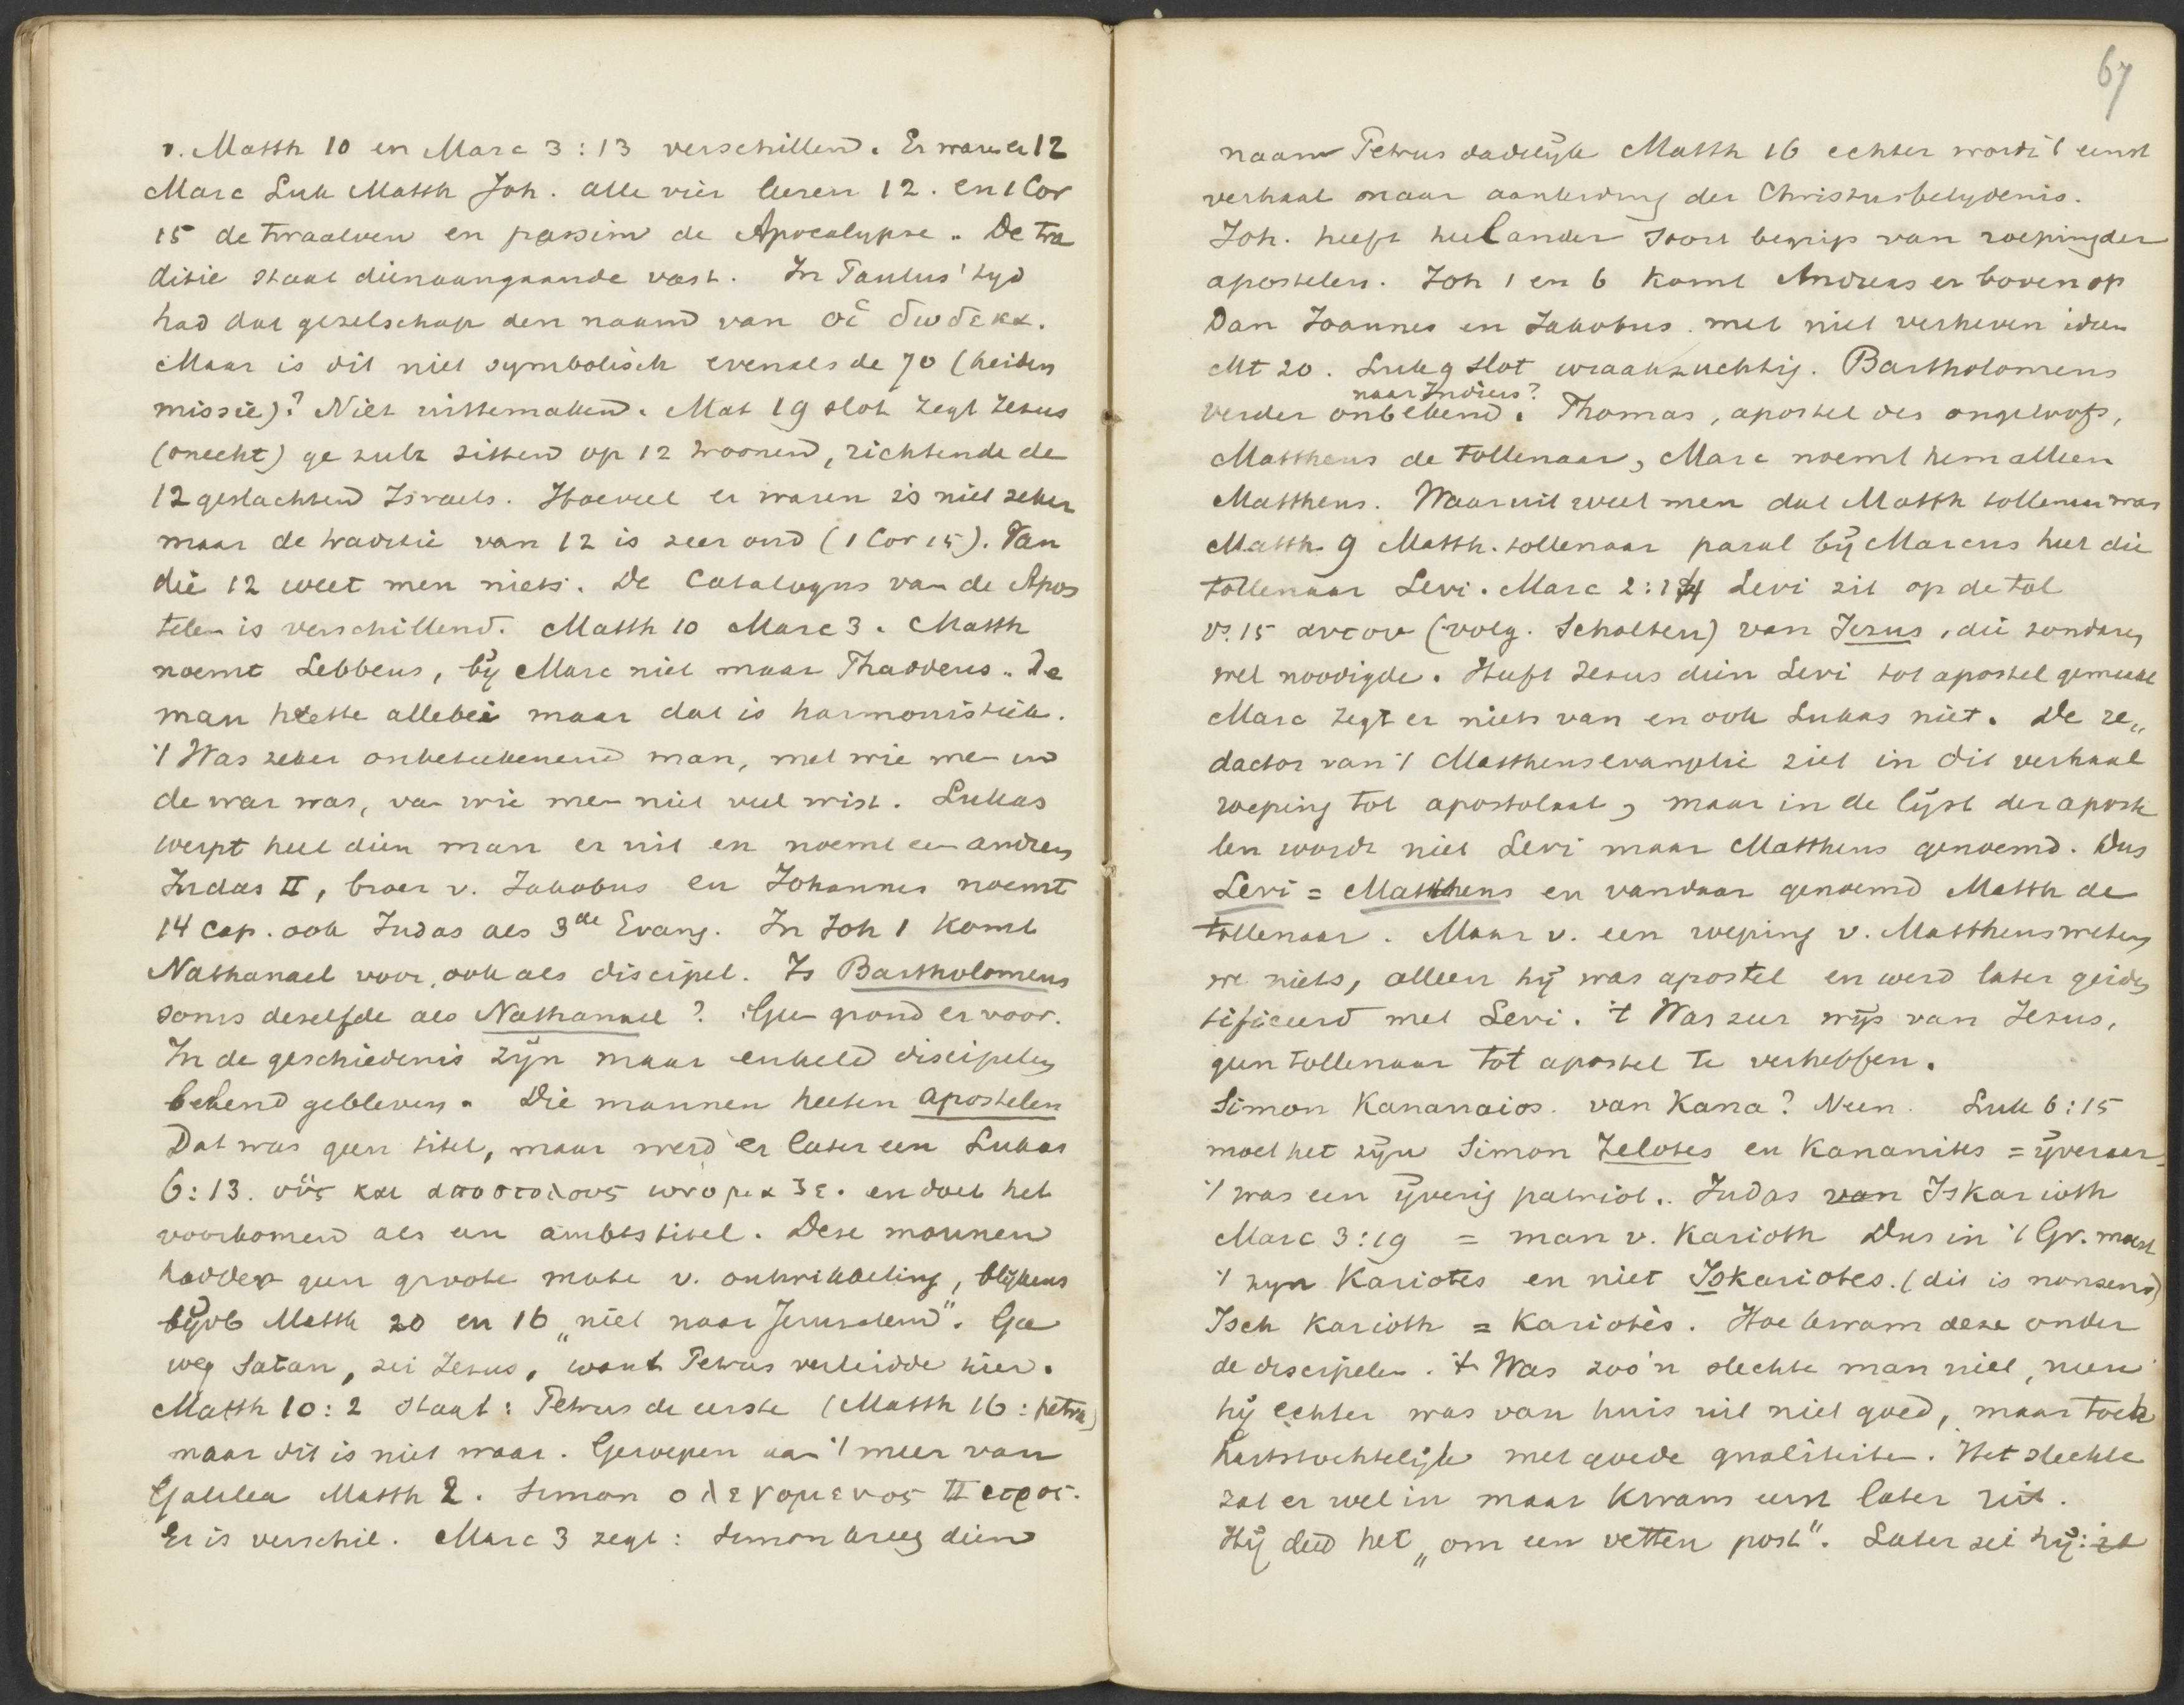 v. Matth 10 en Marc 3:13 verschillend. Er waren er 12
Marc Luk Matth Joh. alle vier leeren 12. en 1 Cor
15 de twaalven en passim de Apocalypse. De tra
ditie staat dienaangaande vast. In Paulus' tyd
had dat gezelschap den naam van οἱ δωδεκα.
Maar is dit niet symbolisch evenals de 70 (heiden
missie)? Niet uittemaken. Mat 19 slot zegt Jezus
(onecht) ge zult zitten op 12 troonen, richtende de
12 geslachten Israels. Hoeveel er waren is niet zeker
maar de traditie van 12 is zeer oud (1 Cor 15). Van
die 12 weet men niets. De Catalogus van de Apos
telen is verschillend. Matth 10 Marc 3. Matth
noemt Lebbeus, by Marc niet maar Thaddeus. De
man heette allebei maar dat is harmonistiek.
't Was zeker onbeteekenend man, met wie men in
de war was, van wie men niet veel wist. Lukas
werpt heel dien man er uit en noemt een anderen
Judas II, broer v. Jakobus en Johannes noemt
14 cap. ook Judas als 3de Evang. In Joh 1 komt
Nathanael voor, ook als discipel. Is Bartholomeus
soms dezelfde als Nathanael? Geen grond er voor.
In de geschiedenis zyn maar enkele discipelen
bekend gebleven. Die mannen heeten apostelen
Dat was geen titel, maar werd er later een Lukas
6:13. οὓς και αποστολους ωνομαζε. en doet het
voorkomen als een ambtstitel. Deze mannen
hadden geen groote mate v. ontwikkeling, blijkens
byvb Matth 20 en 16 „niet naar Jerusalem". Ga
weg Satan, zei Jezus, want Petrus verleidde hier.
Matth 10:2 staat: Petrus de eerste (Matth 16: petra)
maar dit is niet waar. Geroepen aan 't meer van
Galilea Matth 2. Simon ο λεγομενος Πετρος.
Er is verschil. Marc 3 zegt: Simon kreeg dien
67
naam Petrus dadelyk Matth 16 echter wordt 't eerst
verhaal naar aanleiding der Christusbelydenis.
Joh. heeft heel ander soort begrip van roeping der
apostelen. Joh 1 en 6 komt Andreas er boven op
Dan Joannes en Jakobus. met niet verheven ideen
Mt 20. Luk 9 slot wraakzuchtig. Bartholomeus
naar Indiers?
verder onbekend. Thomas, apostel des ongeloofs,
Mattheus de tollenaar, Marc noemt hem alleen
Mattheus. Waaruit weet men dat Matth tollenaar was
Matth 9 Matth. tollenaar paral bij Marcus heet die
tollenaar Levi. Marc 2:14 Levi zit op de tol
vs. 15 αυτου (volg. Scholten) van Jezus, die zondaren
wel noodigde. Heeft Jezus dien Levi tot apostel gemaakt
Marc zegt er niets van en ook Lukas niet. De re„
dactor van 't Mattheusevangelie ziet in dit verhaal
roeping tot apostolaat, maar in de lijst der aposte
len wordt niet Levi maar Mattheus genoemd. Dus
Levi = Mattheus en vandaar genoemd Matth de
tollenaar. Maar v. een roeping v. Mattheus weten
we niets, alleen hij was apostel en werd later geiden
tificeerd met Levi. 't Was zeer wijs van Jezus,
geen tollenaar tot apostel te verheffen.
Simon Kananaios. van Kana? Neen. Luk 6:15
moet het zijn Simon Zelotes en Kananites = ijveraar
't was een ijverig patriot. Judas van Iskarioth
Marc 3:19 = man v. Karioth Dus in 't Gr. moest
't zyn Kariotes en niet Iskariotes. (dit is nonsens)
Isch Karioth = Kariotès. Hoe kwam deze onder
de discipelen. 't Was zoo'n slechte man niet, neen
hij echter was van huis uit niet goed, maar toch
hartstochtelijk met goede qualiteiten. Het slechte
zat er wel in maar kwam eerst later uit.
Hij deed het „om een vetten post". Later zei hij: ik